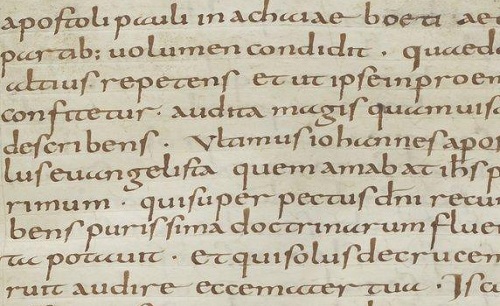 apostoli pauli in achaiae boeti ae
partib; uolumen condidit . quaed
altius repetens et ut ipse in proem
confitetur . audita magis quam uis
describens . Ultimus iohannes apos
lus euangelista quem amabat ihs p
rimum . qui super pectus dni recum
bens purissima doctrinarum fluen
ta potauit . et qui solus de cruce m
ruit audire ecce mater tua . Is c